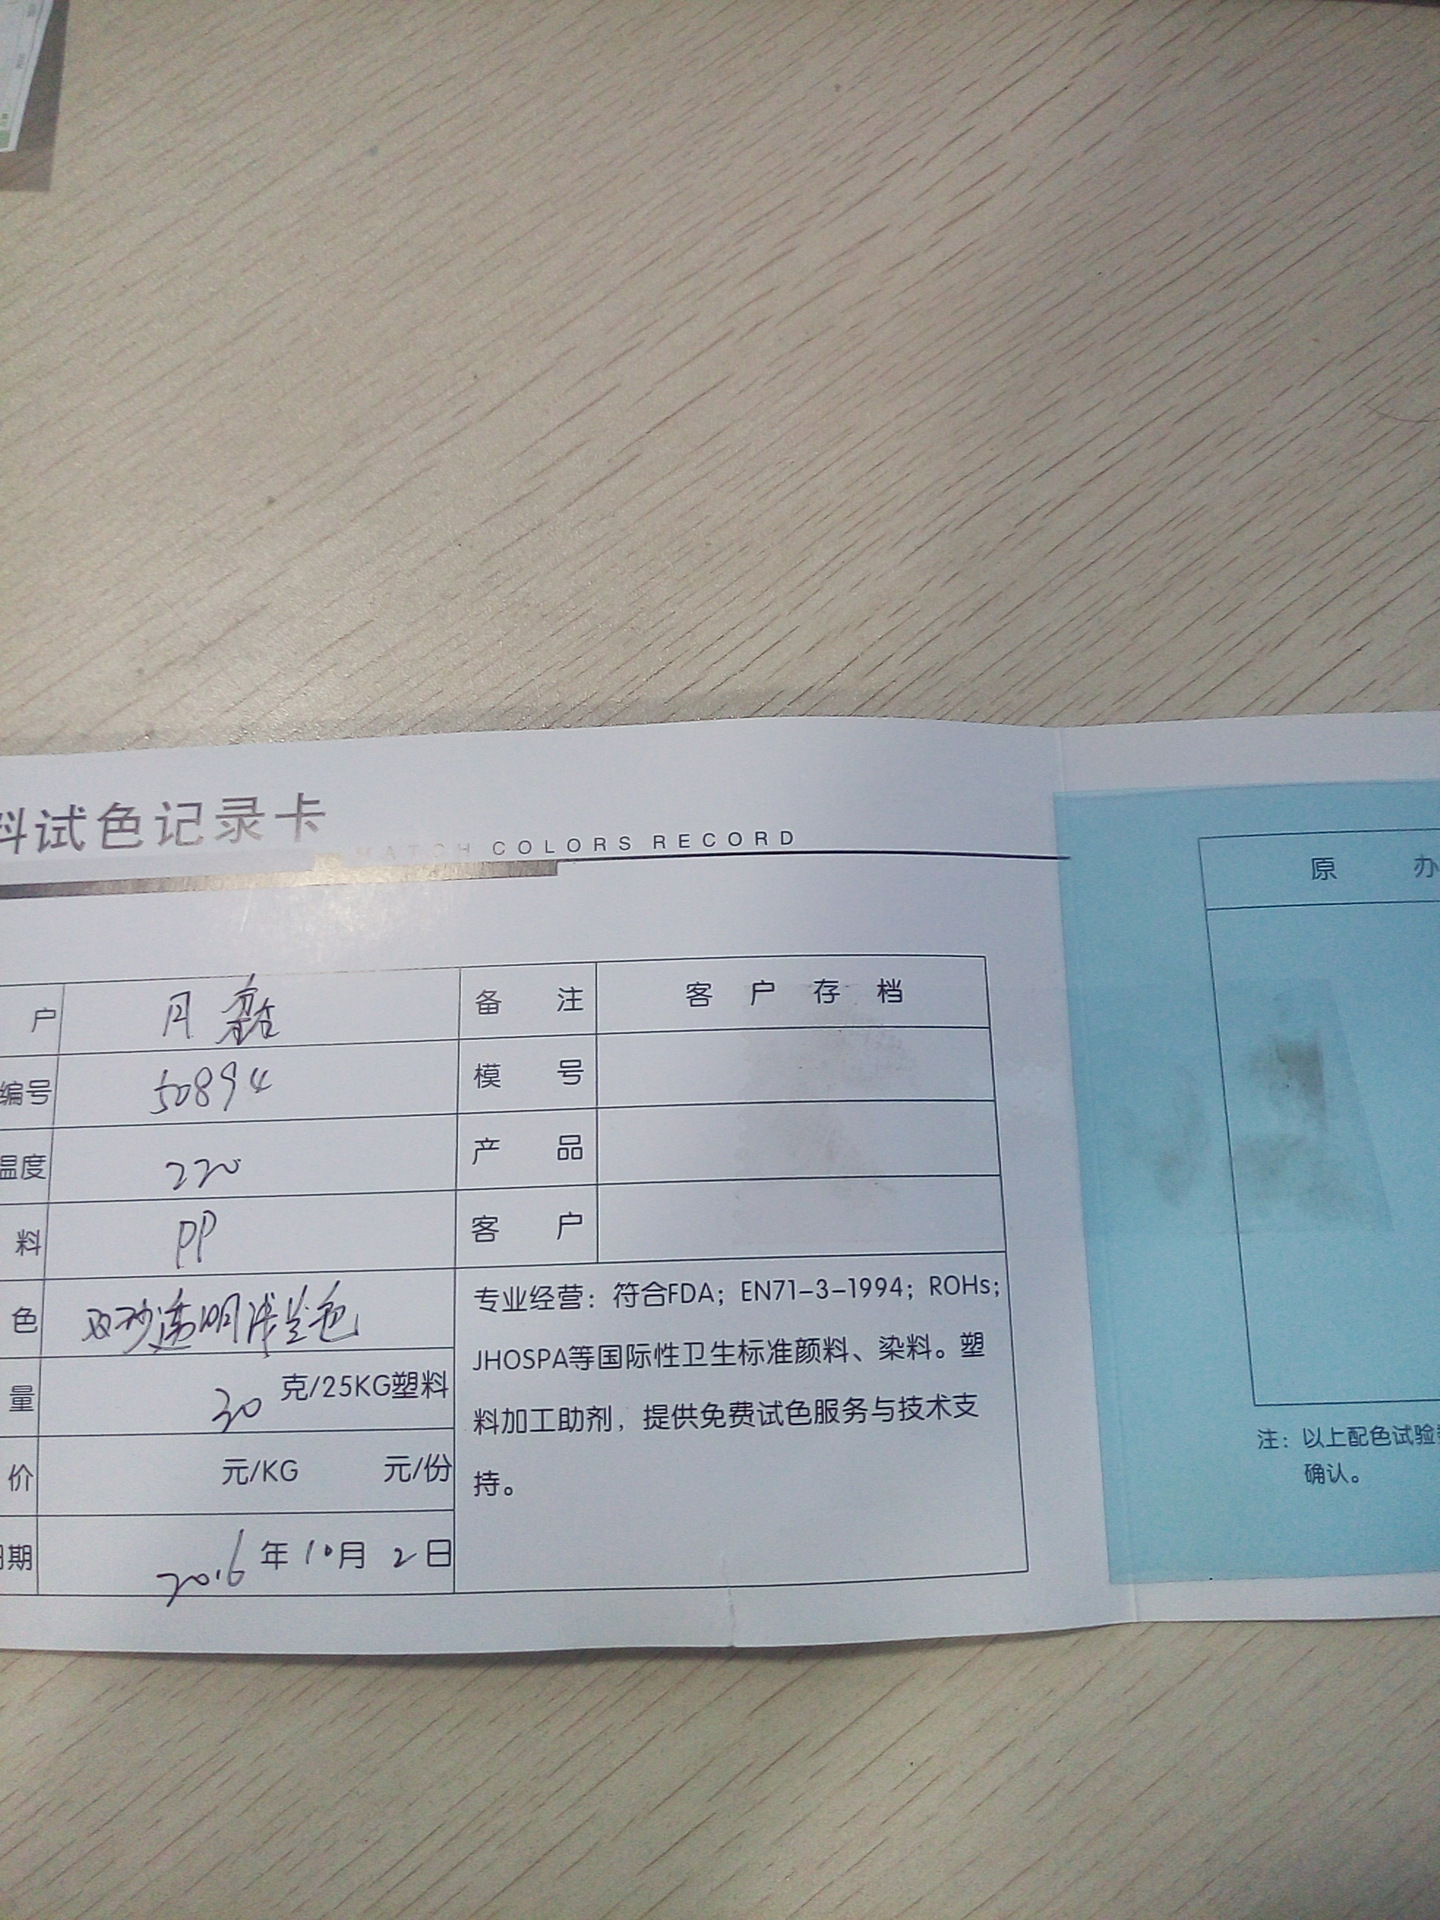 料试色记录卡
MATCH COLORS RECORD
户 月
备注 客户存档
编号 50894
模号
温度 220
产品
料 PP
客户
色 透明浅兰色
量 30 克/25KG塑料
价 元/KG 元/份
日期 2016年10月2日
专业经营：符合FDA；EN71-3-1994；ROHs；
JHOSPA等国际性卫生标准颜料、染料。塑
料加工助剂，提供免费试色服务与技术支
持。
原办
注：以上配色试验
确认。